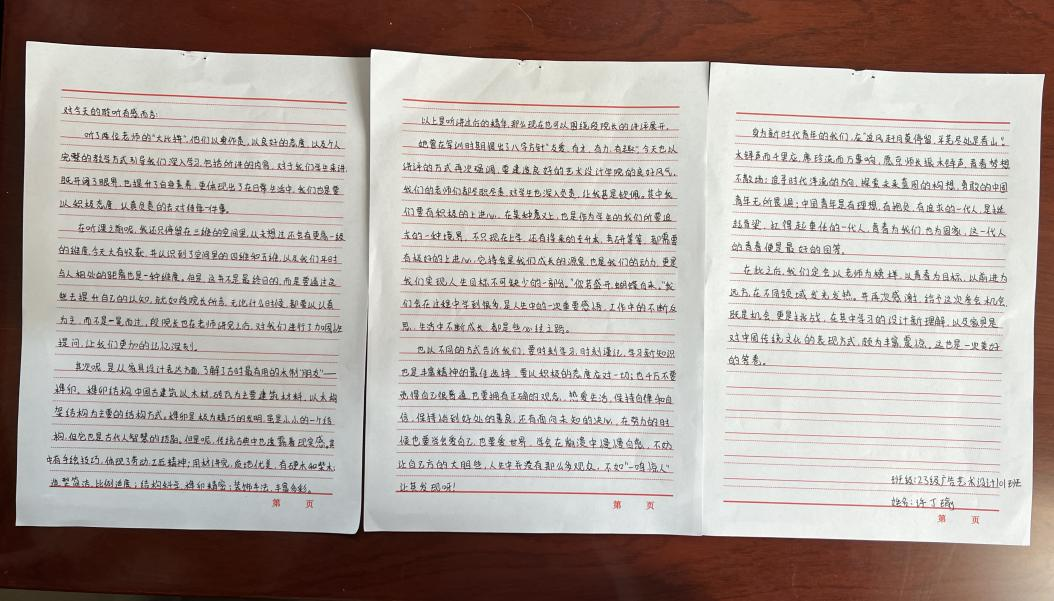 对今天的聆听有感而言:
听了两位老师的"大比拼",他们以身作责,以良好的态度,以及个人
完整的教学方式引导我们深入学习,包括所讲的内容,对于我们学生来讲,
既开阔了眼界,也提升了自身素养,更体现出了在日常生活中,我们也是要
以积极态度,认真负责的去对待每一件事。
在听课之前呢,我还只停留在三维的空间里,从未想过还会有更高一级
的维度,今天大有收获,并认识到了空间里的四维和五维,以及我们平时
与人相处的距离也是一种维度。但是,这并不是最终目的,而是要通过这
些去提升自己的认知,就如段院长所言,无论什么时候,都要以认真
为主,而不是一晃而过,段院长也在老师讲完之后,对我们进行了加固性
提问,让我们更加的记忆深刻。
其次呢,是从家具设计表达方面,了解了古时最有用的木制"朋友"——
榫卯。榫卯结构,中国古建筑以木材、砖瓦为主要建筑材料,以木构
架结构为主要的结构方式。榫卯是极为精巧的发明,虽是小小的一个结
构,但它也是古代人智慧的结晶。但是呢,传统古典中也透露着现实感。其
中有手绘技巧,体现了劳动、工匠精神;用材讲究,质地优美,有硬木和柴木;
造型简洁,比例适度;结构科学,榫卯精密;装饰手法,丰富多彩。
以上是听讲过后的精华,那么现在也可以围绕段院长的讲评展开,
她曾在军训时期提出了八字方针"友爱,有才,有为,有趣",今天也以
讲评的方式再次强调,要建造良好的艺术设计学院的良好风气。
我们的老师们都是尽职尽责,对学生也深入负责,让我甚是钦佩。其中我
们要有积极的上进心,在某种意义上,也是作为学生的我们所要追
求的一种境界,不只现在上学,还有将来的专升本,考研等等,都需要
有极好的上进心,它将会是我们成长的源泉,也是我们的动力,更是
我们实现人生目标不可缺少的一部分。"你若盛开,蝴蝶自来。"我
们会在过程中学到很多,是人生中的一次重要感悟,工作中的不断反
思,生活中不断成长,都是些必经之路。
也以不同的方式告诉我们,要时刻学习,时刻谨记,学习新知识
也是丰富精神的最佳选择,要以积极的态度应对一切;也千万不要
觉得自己很普通,也要拥有正确的观念,热爱生活,保持自律和自
信,保持恰到好处的善良,还有面向未知的决心,在努力的时
候也要学会爱自己,也要爱世界,学会在顺境中漫漫自愈,不妨
让自己方的大胆些,人生中并没有那么多观众,不如"一鸣惊人"
让其发现呀!
身为新时代青年的我们,在"追风赶月莫停留,平芜尽处是春山。"
木铎声而千里应,席珍流而万事响,愿京师长振木铎声,青春梦想
不散场;追寻时代浮流的方向,探索未来蓝图的构想,勇敢的中国
青年无所畏惧;中国青年是有理想,有抱负,有追求的一代人,是挑
起脊梁,扛得起责任的一代人,青春为我们,也为国家,这一代人
的青春便是最好的回答。
在此之后,我们定会以老师为榜样,以青春为目标,以奋进为
远方,在不同领域发光发热。并再次感谢,给予这次参会机会,
既是机会,更是挑战,在其中学习的设计新理解,以及家具是
对中国传统文化的表现方式,颇为丰富震惊。这也是一次美好
的答卷。
班级:23级广告艺术设计101班
姓名:许丁
第 页
第 页
第 页